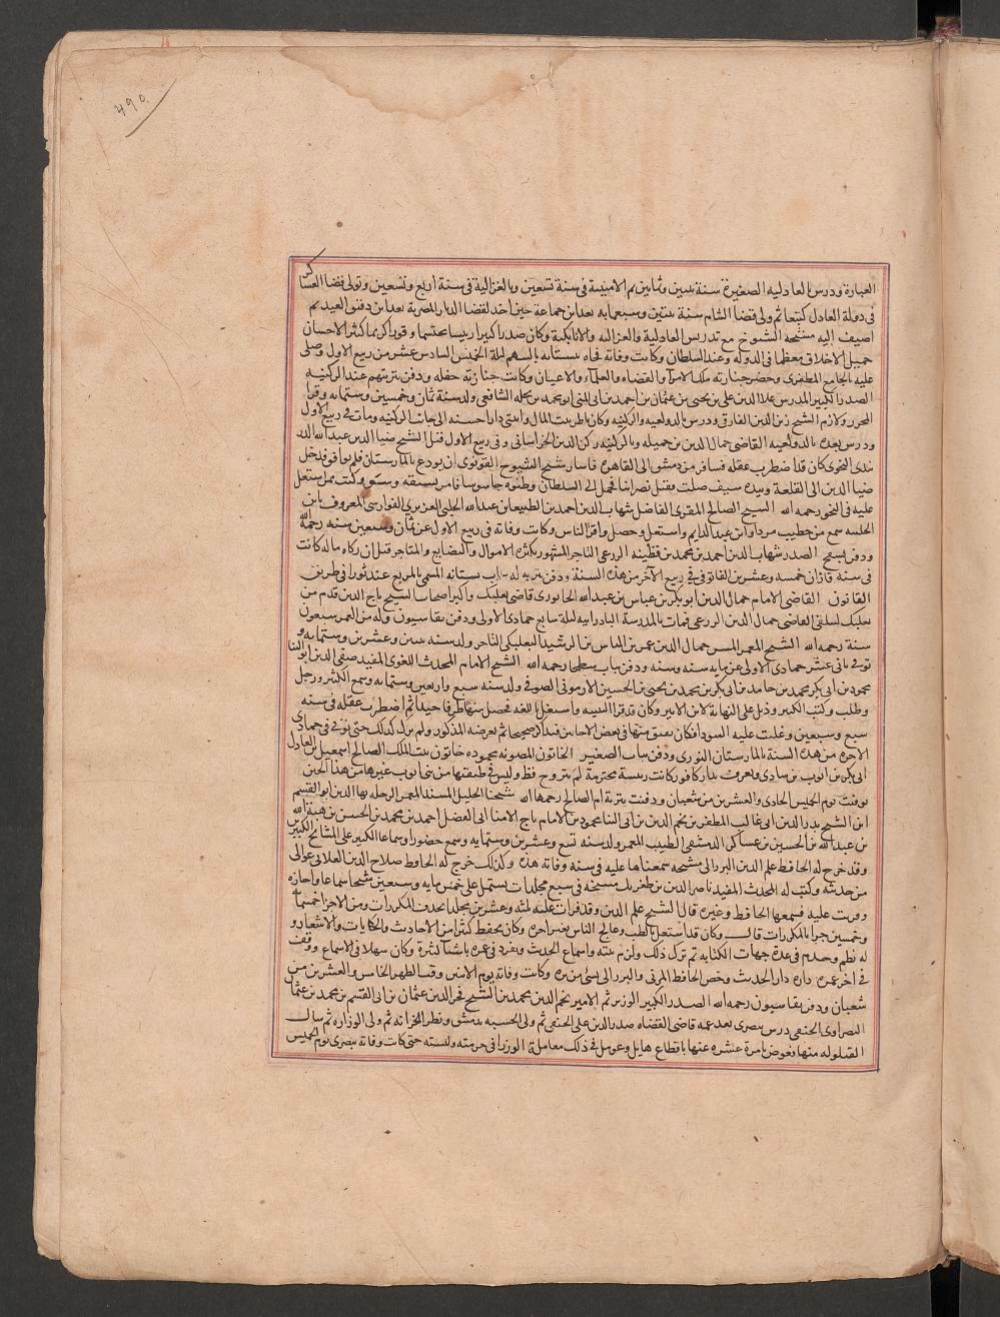 ٤٩٠
العبارة ودرس بالعادليه الصغيرة سنة ثنتين وثمانين ثم الامينية فى سنة تسعين وبالغزالية فى سنة اربع وتسعين وتولى قضا العساكر
فى دولة العادل كتبغا ثم ولى قضا الشام سنة ثنتين وسبعمايه بعد ابن جماعة حين اخذ لقضا الديار المصرية بعد ابن دقيق العيد ثم
اضيف اليه مشيخة الشيوخ مع تدريس العادلية والغزاليه والاتابكية وكان صدرا كبيرا رييسا محتشما وقورا كريما كثير الاحسان
جميل الاخلاق معظما فى الدوله وعند السلطان وكانت وفاته فجاه ببستانه بالسهم ليلة الخميس السادس عشر من ربيع الاول وصلى
عليه بالجامع المظفرى وحضر جنازته ملك الامرا والقضاه والعلماء والاعيان وكانت جنازته حفله ودفن بتربتهم عند الركنيه
الصدر الكبير المدرس علا الدين على بن يحيى بن عثمان بن احمد بن ابى المنى ابو محمد بن نحله الشافعى ولد سنة ثمان وخمسين وستمايه وقرا
المحرر ولازم الشيخ زين الدين الفارقى ودرس بالدولعيه والركنيه وكان ناظر بيت المال وابتنى دارا حسنه الى جانب الركنيه ومات فى ربيع الاول
ودرس بعده بالدولعيه القاضى جمال الدين بن جميله وبالركنيه ركن الدين الخراسانى وفى ربيع الاول قتل الشيخ ضيا الدين عبد الله الدر
بندى النحوى كان قد اضطرب عقله فسافر من دمشق الى القاهره فاشار شيخ الشيوخ القونوى ان يودع بالمارستان فلم يوافق فدخل
ضيا الدين الى القلعة وبيده سيف صلت فقتل نصرانيا فحمل الى السلطان وظنوه جاسوسا فامر بشنقه وشنق وكنت ممن يشتغل
عليه فى النحو رحمه الله الشيخ الصالح المقرى الفاضل شهاب الدين احمد بن الطبيعان عبد الله الحلبى العزيزى الفوارسى المعروف بابن
الحلبيه سمع من خطيب مردا وابن عبد الدايم واشتغل وحصل واقرا الناس وكانت وفاته فى ربيع الاول عن ثمان وسبعين سنه رحمه الله
ودفن بسفح الصدر شهاب الدين احمد بن محمد بن قطينه الزرعى التاجر المشهور بكثرة الاموال والبضايع والمتاجر قيل ان زكاه ماله كانت
فى سنة قازان خمسه وعشرين الفا توفى فى ربيع الاخر من هذه السنة ودفن بتربه له بباب بستانه المسمى بالمربع عند ثورا فى طريق
القانون القاضى الامام جمال الدين ابو بكر بن عباس بن عبد الله الخابورى قاضى بعلبك واكبر اصحاب الشيخ تاج الدين قدم من
بعلبك لملتقى القاضى جمال الدين الزرعى فمات بالمدرسة البادرانيه ليلة سابع جمادى الاولى ودفن بقاسيون وله من العمر سبعون
سنة رحمه الله الشيخ المعمر المسن جمال الدين عمر بن الياس بن الرشيد البعلبكى التاجر ولد سنه ثنتين وعشرين وستمايه و
توفى ثانى عشر جمادى الاولى عن مايه سنه وسنه ودفن بباب سطحا رحمه الله الشيخ الامام المحدث اللغوى المفيد صفى الدين ابو الثنا
محمود بن ابى بكر محمد بن حامد بن ابى بكر بن محمد بن يحيى بن الحسين الارموى الصوفى ولد سنه سبع واربعين وستمايه وسمع الكثير ورحل
وطلب وكتب الكثير وذيل على النهايه لابن الاثير وكان قد قرا التنبيه واشتغل باللغه فحصل منها طرفا جيدا ثم اضطرب عقله فى سنه
سبع وسبعين وغلبت عليه السودا فكان يفيق منها فى بعض الاحيان فيذاكر صحيحا ثم يعرضه المذكور ولم يزل كذلك حتى توفى فى جمادى
الاخره من هذه السنة بالمارستان النورى ودفن بباب الصغير الخاتون المصونه محموده خاتون بنت الملك الصالح اسمعيل بن العادل
ابى بكر بن ايوب بن شادى وتعرف بدار كافور كانت رييسة محترمة لم تتزوج قط وليس فى طبقتها من بنى ايوب غيرها من هذا الحين
توفيت يوم الخميس الحادى والعشرين من شعبان ودفنت بتربة ام الصالح رحمها الله شيخنا الجليل المسند المعمر الرحله بها الدين ابو القسم
ابن الشيخ بدر الدين ابى غالب المظفر بن نجم الدين بن ابى الثنا محمود بن الامام تاج الامنا ابى الفضل احمد بن محمد بن الحسن بن هبة الله
بن عبد الله بن الحسين بن عساكر الدمشقى الطبيب المعمر ولد سنه تسع وعشرين وستمايه وسمع حضورا وسماعا الكثير على المشايخ الكثير
وقد خرج له الحافظ علم الدين البرزالى مشيخه سمعناها عليه فى سنه وفاته هذه وكذلك خرج له الحافظ صلاح الدين العلائى عوالى
من حديثه وكتب له المحدث المفيد ناصر الدين بن طغريل مشيخه فى سبع مجلدات يشتمل على خمس مايه وسبعين شيخا سماعا واجازه
وقريت عليه فسمعها الحافظ وغيره قال الشيخ علم الدين وقد قرات عليه ثلثه وعشرين مجلدا بحذف المكررات ومن الاجزا خمسمايه
وخمسين جزا بالمكررات قال وكان قد اشتغل بالطب وعالج الناس بغير اجره وكان يحفظ كثيرا من الاحاديث والحكايات والاشعار و
له نظم وخدم فى عدة جهات الكتابه ثم ترك ذلك ولزم بيته واسماع الحديث وتفرد فى عمره باشيا كثيرة وكان سهلا فى الاسماع ووقف
فى اخر عمره داره دار الحديث وخص الحافظ المزى والبرزالى بشى من بره وكانت وفاته يوم الاثنين وقت الظهر الخامس والعشرين من
شعبان ودفن بقاسيون رحمه الله الصدر الكبير الوزير ثم الامير نجم الدين محمد بن الشيخ فخر الدين عثمان بن ابى القسم بن محمد بن عثمان
البصراوى الحنفى درس ببصرى بعد عمه قاضى القضاه صدر الدين على الحنفى ثم ولى الحسبه بدمشق ونظر الخزانه ثم ولى الوزاره ثم سال
القيلوله منها فعوض بامرة عشره عنها باقطاع هايل وعومل فى ذلك معاملة الوزرا فى حرمته ولبسته حتى كانت وفاته ببصرى يوم الخميس